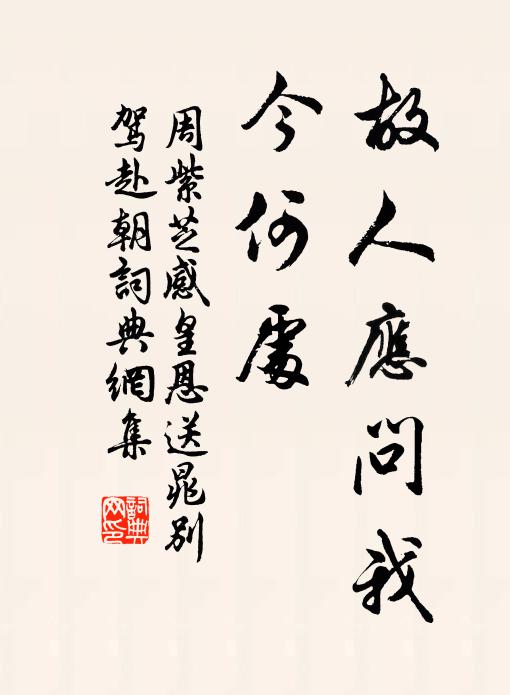 故人應問我
今何處
周紫芝感皇恩送晁別
駕赴朝詞典網集
詞典
网印